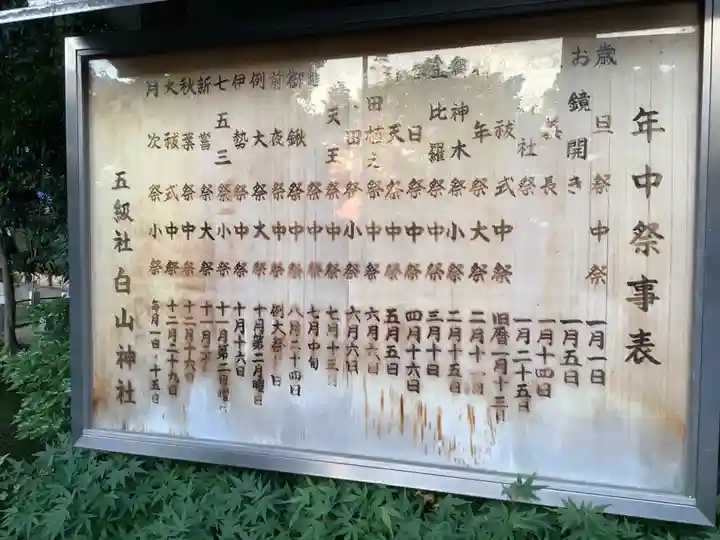 年中祭事表
歳旦祭中祭 一月一日
お鏡開き 一月五日
長 一月十四日
社祭 一月二十五日
祓式中祭 旧暦一月十三日
年祭大祭 二月十一日
御神木祭小祭 二月十五日
金比羅祭中祭 三月十日
日祭中祭 四月十六日
天祭中祭 五月五日
田植之祭中祭 六月
田祭小祭 六月六日
天王祭中祭 七月十三
祭中祭 七月中旬
御鍬祭中祭 八月二十四日
前夜祭中祭 例大祭前日
例大祭大祭 十月第二日曜日
伊勢祭中祭 十月十六日
七五三祭小祭 十一月第二日曜日
新嘗祭大祭 十一月二十
秋葉祭中祭 十二月十六日
大祓式中祭 十二月二十九日
月次祭小祭 毎月一日十五日
五級社白山神社